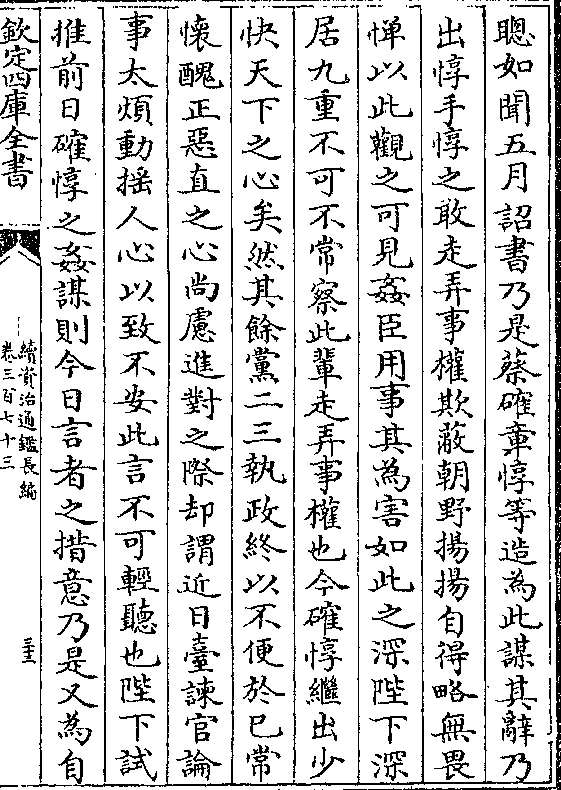 聰如聞五月詔書乃是蔡確章惇等造為此謀其辭乃
出惇手惇之敢走弄事權欺蔽朝野揚揚自得略無畏
憚以此觀之可見姦臣用事其為害如此之深陛下深
居九重不可不常察此輩走弄事權也今確惇繼出少
快天下之心矣然其餘黨二三執政終以不便於已常
懷醜正惡直之心尚慮進對之際却謂近日臺諫官論
事太煩動揺人心以致不安此言不可輕聽也陛下試
推前日確惇之姦謀則今日言者之措意乃是又為自
欽定四庫全書
續資治通鑑長編
卷三百七十三